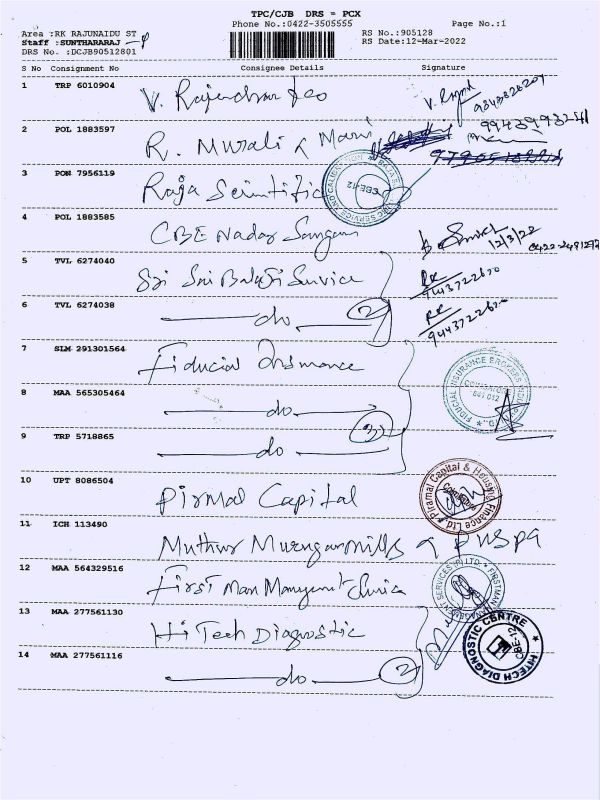 TPC/CJB DRS = PCX
Phone No.:0422-3505555
Page No.:1
Area :RK RAJUNAIDU ST
RS No.:905128
Staff :SUNTHARARAJ
RS Date:12-Mar-2022
DRS No. :DCJB90512801
S No Consignment No Consignee Details Signature
1 TRP 6010904 V. Rajendran
2 POL 1883597 R. Murali & Mani
3 PON 7956119 Raja Scientific
CBE-12
4 POL 1883585 CBE Nadar Sangam 12/3/22
5 TVL 6274040 Sri Sai Balaji Service
9443722670
6 TVL 6274038 do 2
9443722670
7 SLM 291301564 Fiducial Insurance
FIDUCIAL INSURANCE BROKERS
641 012
8 MAA 565305464 do
9 TRP 5718865 do 3
10 UPT 8086504 Pirmal Capital
Piramal Capital & Housing Finance Ltd
Coimbatore
11 ICH 113490 Muthur Murugan mills
12 MAA 564329516 First Man
13 MAA 277561130 Hi Tech Diagnostic
HITECH DIAGNOSTIC CENTRE
CBE-12
14 MAA 277561116 do 2